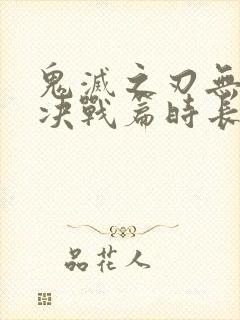 鬼滅之刃無
決戰篇時長
品花人